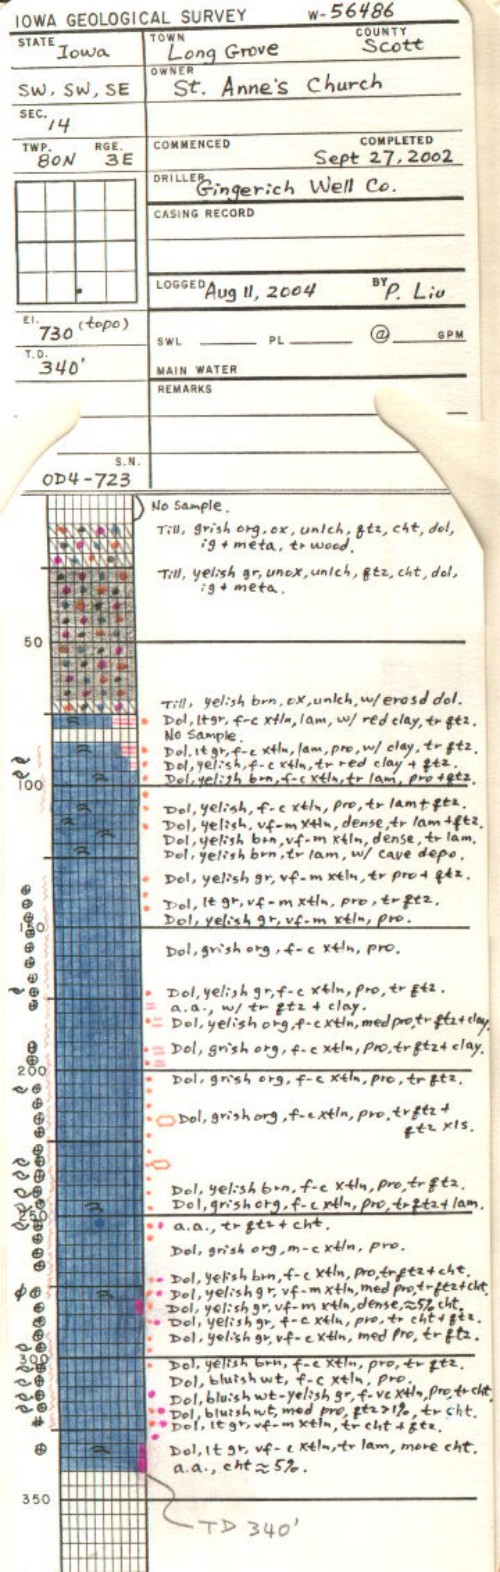 IOWA GEOLOGICAL SURVEY W-56486
STATE Iowa TOWN Long Grove COUNTY Scott
SW, SW, SE OWNER St. Anne's Church
SEC. 14
TWP. 80N RGE. 3E COMMENCED COMPLETED Sept 27, 2002
DRILLER Gingerich Well Co.
CASING RECORD
LOGGED Aug 11, 2004 BY P. Liu
El. 730 (topo)
SWL PL @ GPM
T.D. 340'
MAIN WATER
REMARKS
S.N.
OD4-723
No Sample.
Till, grish org, ox, unlch, qtz, cht, dol,
ig + meta, tr wood.
Till, yelish gr, unox, unlch, qtz, cht, dol,
ig + meta.
50
Till, yelish brn, ox, unlch, w/ erosd dol.
Dol, lt gr, f-c xtln, lam, w/ red clay, tr qtz.
No Sample.
Dol, lt gr, f-c xtln, lam, pro, w/ clay, tr qtz.
Dol, yelish, f-c xtln, tr red clay + qtz.
100 Dol, yelish brn, f-c xtln, tr lam, pro + qtz.
Dol, yelish, f-c xtln, pro, tr lam + qtz.
Dol, yelish, vf-m xtln, dense, tr lam + qtz.
Dol, yelish brn, vf-m xtln, dense, tr lam.
Dol, yelish brn, tr lam, w/ cave depo.
Dol, yelish gr, vf-m xtln, tr pro + qtz.
Dol, lt gr, vf-m xtln, pro, tr qtz.
150 Dol, yelish gr, vf-m xtln, pro.
Dol, grish org, f-c xtln, pro.
Dol, yelish gr, f-c xtln, pro, tr qtz.
a.a., w/ tr qtz + clay.
Dol, yelish org, f-c xtln, med pro, tr qtz + clay.
Dol, grish org, f-c xtln, pro, tr qtz + clay.
200
Dol, grish org, f-c xtln, pro, tr qtz.
Dol, grish org, f-c xtln, pro, tr qtz +
qtz xls.
Dol, yelish brn, f-c xtln, pro, tr qtz.
Dol, grish org, f-c xtln, pro, tr qtz + lam.
250 a.a., tr qtz + cht.
Dol, grish org, m-c xtln, pro.
Dol, yelish brn, f-c xtln, pro, tr qtz + cht.
Dol, yelish gr, vf-m xtln, med pro, tr qtz + cht.
Dol, yelish gr, vf-m xtln, dense, ≈5% cht.
Dol, yelish gr, f-c xtln, pro, tr cht + qtz.
Dol, yelish gr, vf-c xtln, med pro, tr qtz.
300
Dol, yelish brn, f-c xtln, pro, tr qtz.
Dol, bluish wt, f-c xtln, pro.
Dol, bluish wt - yelish gr, f-vc xtln, pro, tr cht.
Dol, bluish wt, med pro, qtz >1%, tr cht.
Dol, lt gr, vf-m xtln, tr cht + qtz.
Dol, lt gr, vf-c xtln, tr lam, more cht.
a.a., cht ≈ 5%.
350
TD 340'